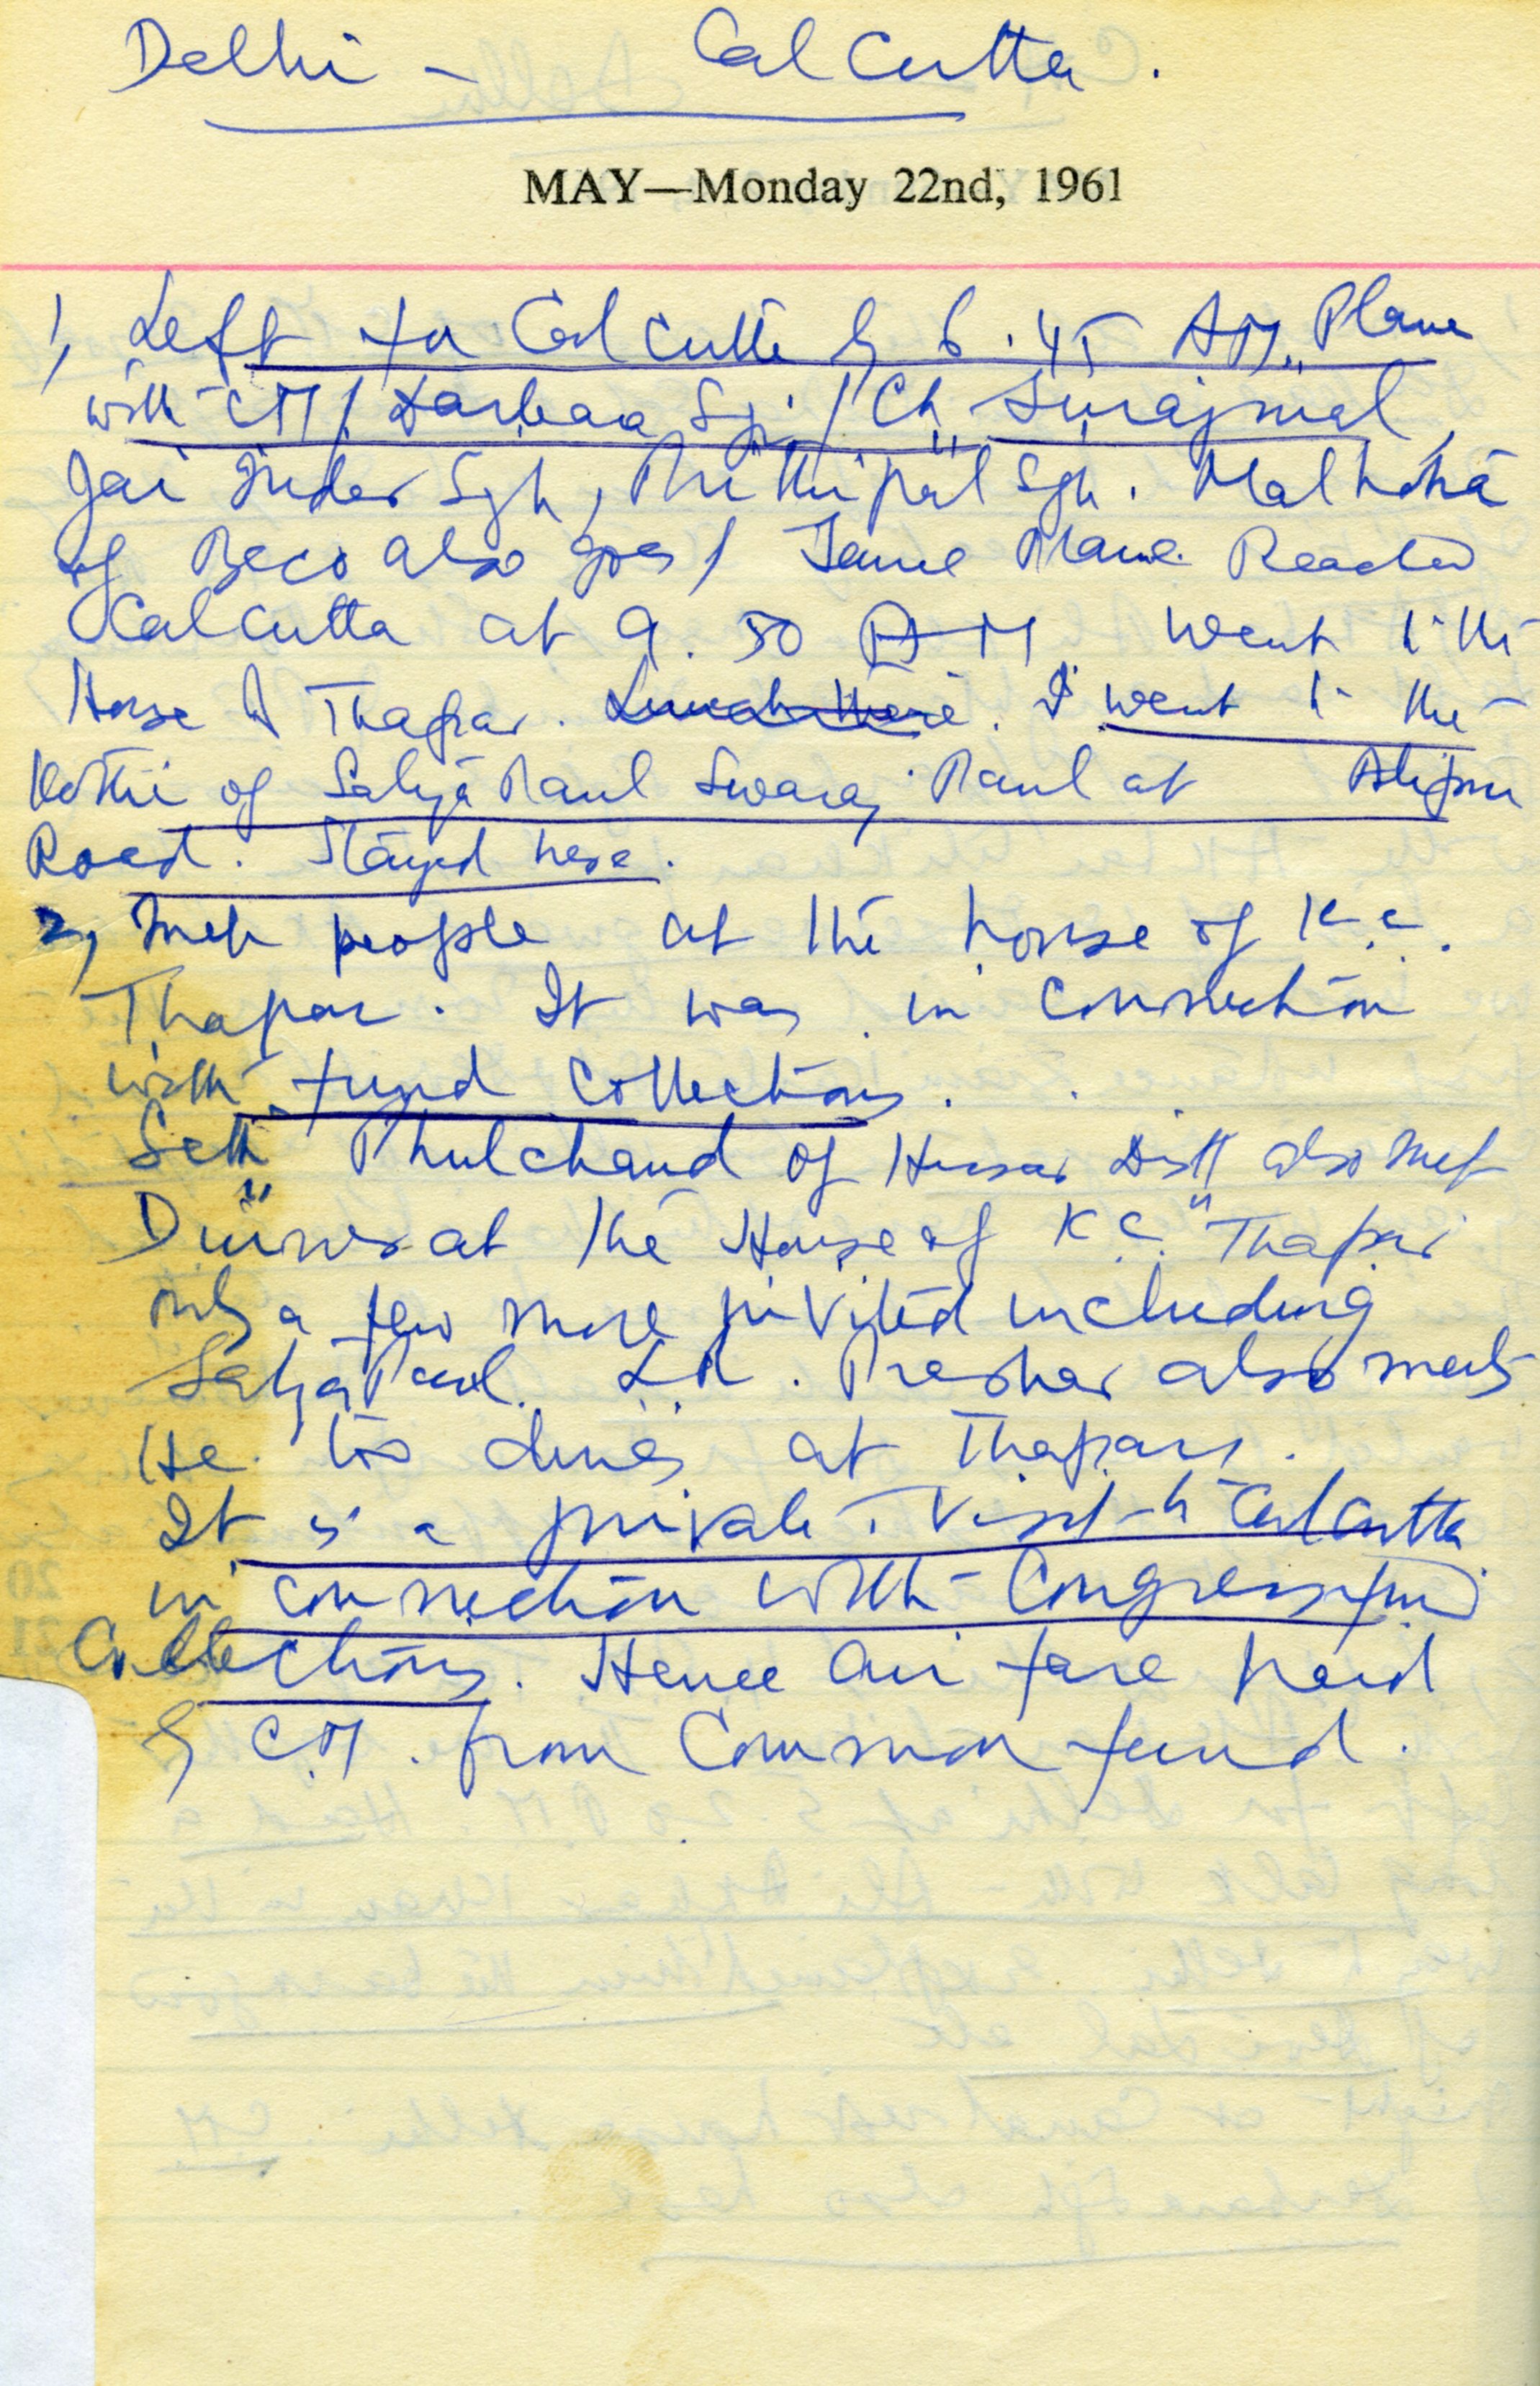 Delhi - Calcutta.
MAY—Monday 22nd, 1961
1, Left for Calcutta by 6.45 AM. Plane
with CM / Darbara Sgh. / Ch. Surajmal,
Jai Inder Sgh, Prithipal Sgh. Malhotra
of Beco also goes / Same Plane Reached
Calcutta at 9.50 AM Went to the
House of Thapar. Lunch there. I went to the
Kothi of Satya Paul Swaraj Paul at Alipur
Road. Stayed here.
2, Met people at the house of K.C.
Thapar. It was in connection
with fund collections.
Seth Phulchand of Hissar Distt also met
Dinner at the House of K.C. Thapar
only a few more invited including
Satya Paul. Prasher also meets
He too dines at Thapars.
It is a private visit to Calcutta
in connection with Congress fund
Collections. Hence Air fare paid
by C.M. from Common fund.